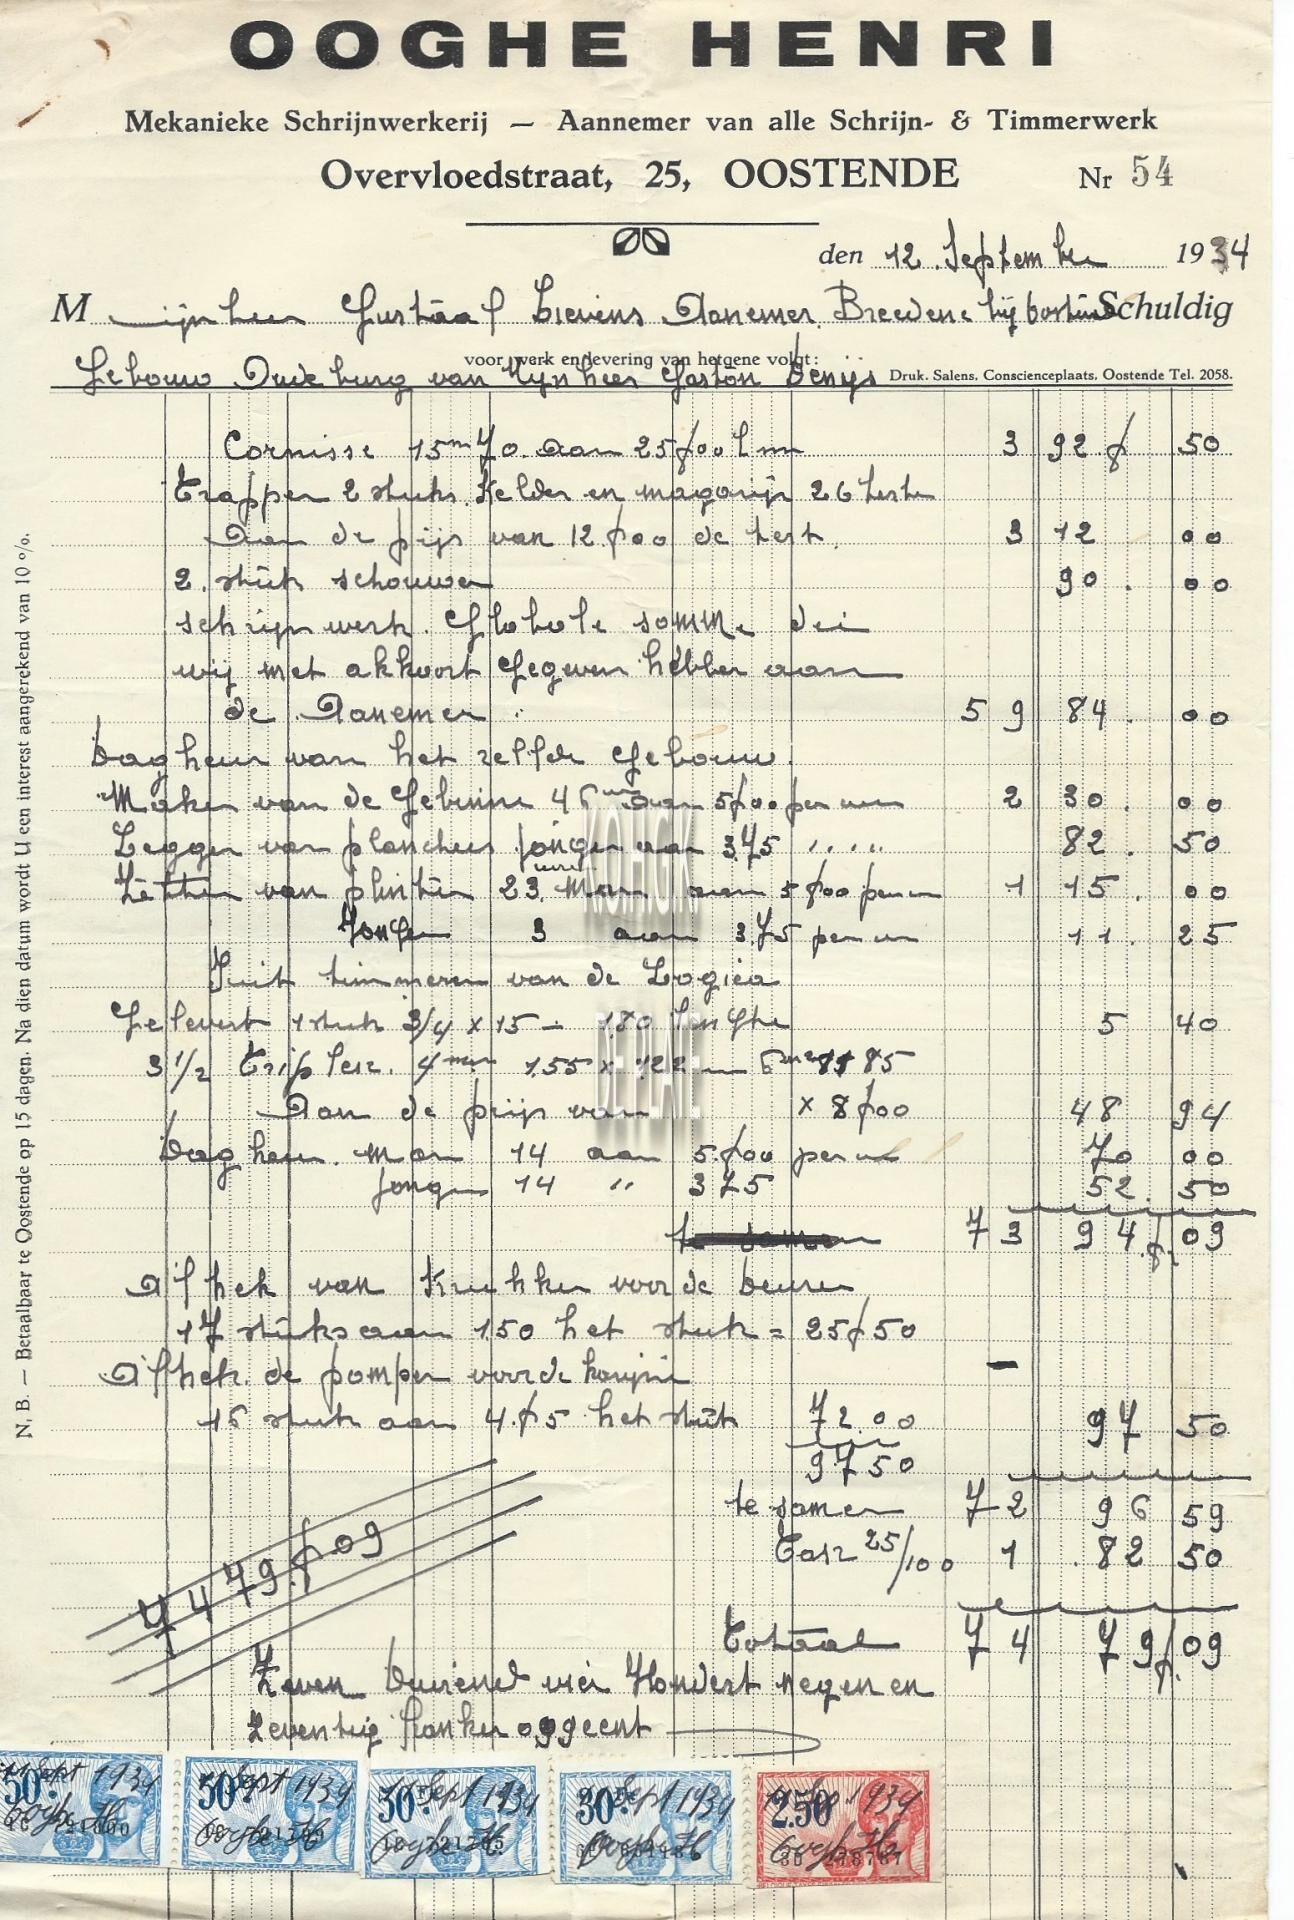 OOGHE HENRI
Mekanieke Schrijnwerkerij — Aannemer van alle Schrijn- & Timmerwerk
Overvloedstraat, 25, OOSTENDE Nr 54
den 12 September 1934
Mijnheer Gustaaf Lievens Aanemer Breedene bij Schuldig
voor werk en levering van hetgene volgt:
Gebouw Oudeburg van Mijnheer Gaston Denijs Druk. Salens, Conscienceplaats, Oostende Tel. 2058.
Cornisse 15m70 aan 25f00 l m 3 92f 50
Trappen 2 stuks Kelder en magazijn 26
Aan de prijs van 12f00 de 3 12 00
2 stuk schouwen 90 . 00
schrijnwerk. Globale somme
wij met akkoort Gegeven hebben aan
de Aanemer 59 84 . 00
van het zelfde Gebouw
Maken van de 46 aan 5f00 per 2 30 . 00
Leggen van planchers Jongen aan 3.75 " " " " 82 . 50
Zetten van plinten 23 Man aan 5f00 per 1 15 . 00
Jongen 3 aan 3.75 per 11 . 25
timmeren van de
Gelevert 1 stuk 3/4 x 15 — 1.80 5 40
3 1/2 4 mm 1.55 x 1.22
Aan de prijs van x 8f00 48 94
Man 14 aan 5.f00 per 70 00
Jongen 14 " 3.75 52 . 50
73 94 f. 09
van Krukken voor de
17 stuks aan 150 het stuk = 25f50
de pompen voor de
16 stuk aan 4.f5 het stuk 72.00 97 50
97 50
te samen 72 96 59
25/100 1 . 82 50
7479.f09
Totaal 74 79f. 09
Zeven vier Hondert negen en
Zeventig
N. B. — Betaalbaar te Oostende op 15 dagen. Na dien datum wordt U een interest aangerekend van 10 o/o.
KOHGK
DE PLATE
50c 50c 50c 50c 2.50
Sept 1934 Sept 1934 Sept 1934 Sept 1934 1934
Ooghe H Ooghe H Ooghe H Ooghe H Ooghe H